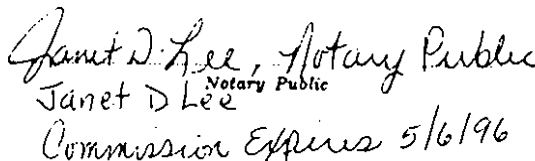 Janet D. Lee, Notary Public
Notary Public
Janet D Lee
Commission Expires 5/6/96